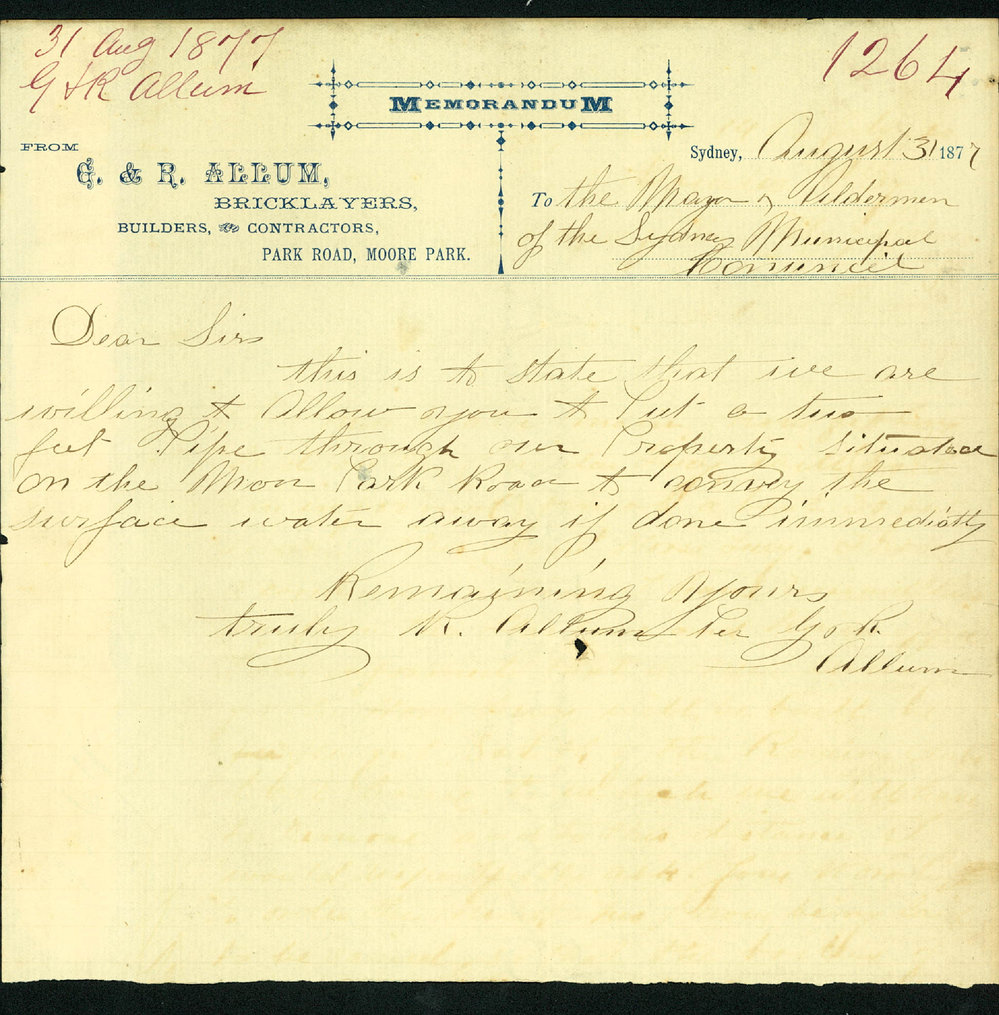 31 Aug 1877
G & R Allum
1264
MEMORANDUM
FROM
G. & R. ALLUM,
BRICKLAYERS,
BUILDERS, and CONTRACTORS,
PARK ROAD, MOORE PARK.
Sydney, August 31 1877
To the Mayor & Aldermen
of the Sydney Municipal
Councicil
Dear Sirs
this is to state that we are
willing to Allow you to Put a two
feet Pipe through our Property situated
on the Moor Park Road to convey the
surface water away if done immediatly
Remaining Yours
truly R. Allum Per G & R.
Allum